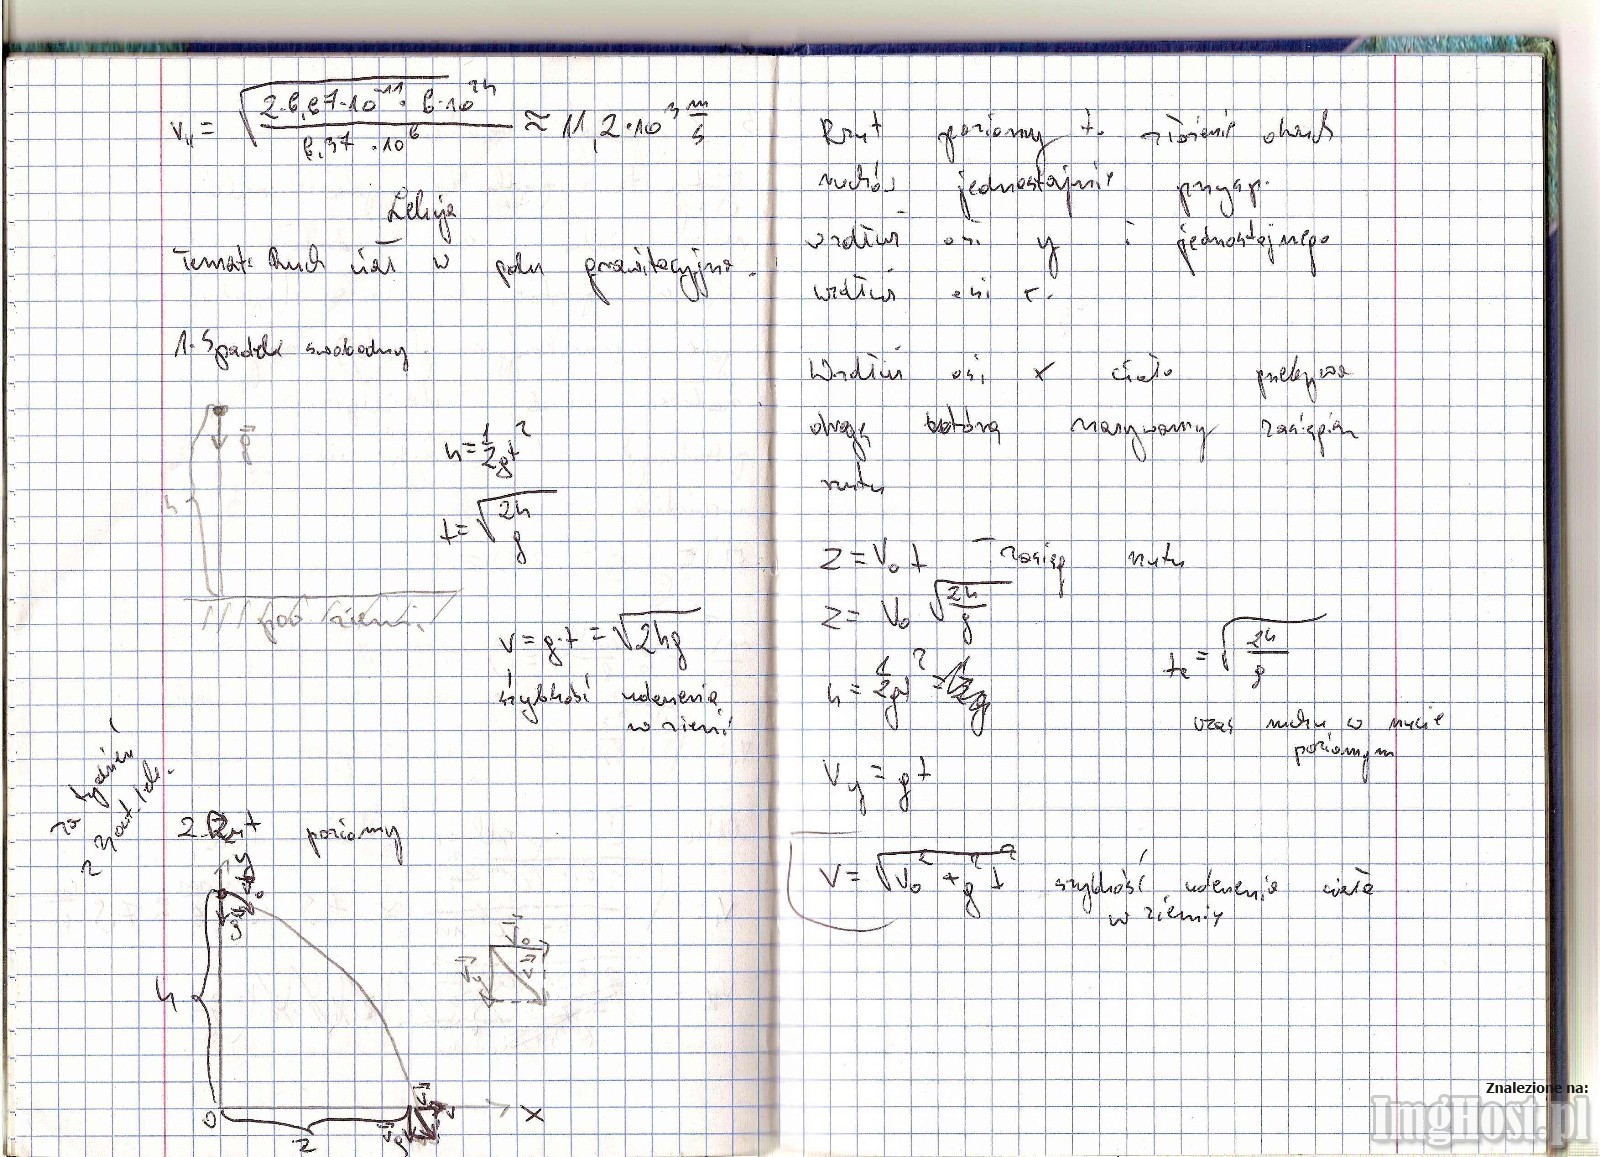 v_II = √(2·6,67·10^-11 · 6·10^24 / 6,37·10^6) ≈ 11,2·10^3 m/s
Lekcja
Temat: Ruch ciał w polu grawitacyjne.
1. Spadek swobodny
g
h = 1/2 gt^2
h
t = √(2h/g)
v = g·t = √2hg
szybkość uderzenia
w ziemi
za tydzień
z
2. Rzut poziomy
y
h
v_0
v_y
v
0
z
x
Rzut poziomy t. złożenie dwuch
ruchów jednostajnie przysp.
wzdłuż osi y i jednostajnego
wzdłuż osi x.
Wzdłuż osi x ciało
drogę którą nazywamy zasięgiem
rzutu
z = v_0 t – zasięg rzutu
z = v_0 √(2h/g)
h = 1/2 gt^2 =
t_c = √(2h/g)
czas ruchu w rzucie
poziomym
v_y = gt
v = √(v_0^2 + g^2 t^2) szybkość uderzenia ciała
w ziemię
Znalezione na:
ImgHost.pl